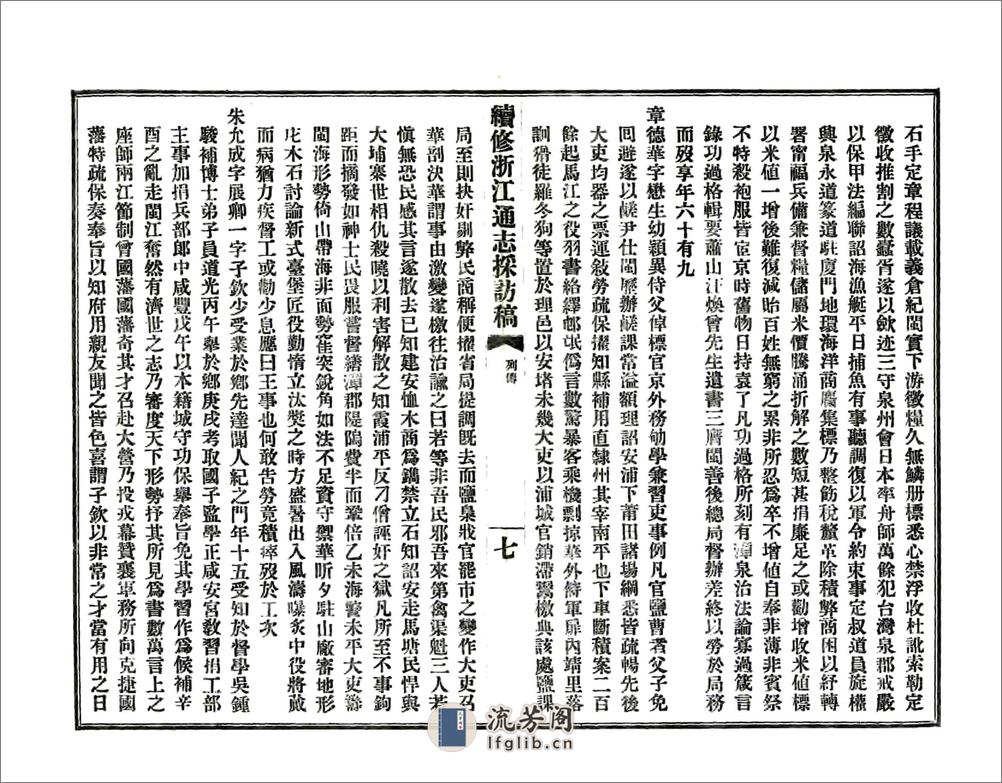 石手定章程議載義倉紀閩實下游徵糧久無鱗册標悉心禁浮收杜訛索勒定
徵收推割之數蠹胥遂以斂迹三守泉州會日本率舟師萬餘犯台灣泉郡戒嚴
以保甲法編聯沿海漁艇平日捕魚有事聽調復以軍令約束事定敘道員旋權
興泉永道篆道駐廈門地環海洋商廣集標乃整飭稅釐革除積弊商困以紓轉
署甯福兵備兼督糧儲屬米價騰涌折解之數短甚捐廉足之或勸增收米値標
以米値一增後難復減貽百姓無窮之累非所忍爲卒不增値自奉菲薄非賓祭
不特殺袍服皆宦京時舊物日持袁了凡功過格所刻有漳泉治法論寡過箴言
錄功過格輯要蕭山汪煥曾先生遺書三膺閩善後總局督辦差終以勞於局務
而歿享年六十有九
章德華字懋生幼穎異侍父倬標官京外務劬學兼習吏事例凡官鹽曹者父子免
回避遂以鹺尹仕閩歷辦鹺課常溢額理詔安浦下莆田諸場綱悉皆疏暢先後
大吏均器之票運敍勞疏保擢知縣補用直隸州其宰南平也下車斷積案二百
餘起馬江之役羽書絡繹郵氓僞言數驚暴客乘機剽掠華外備軍扉內靖里落
訓猾徒羅冬狗等置於理邑以安堵未幾大吏以浦城官銷滯鬻檄典該處鹽課
續修浙江通志採訪稿
列傳
七
局至則抉奸剔弊民商稱便擢省局提調旣去而鹽梟戕官罷市之變作大吏召
華剖決華謂事由激變遂檄往治諭之曰若等非吾民邪吾來第禽渠魁三人若
愼無恐民感其言遂散去已知建安恤木商爲鐫禁立石知詔安走馬塘民悍與
大埔寨世相仇殺曉以利害解散之知霞浦平反刁僧誣奸之獄凡所至不事鉤
距而摘發如神士民畏服嘗督繕漳郡隄隝費半而鞏倍乙未海警未平大吏籌
閩海形勢倚山帶海非面勢崔突銳角如法不足資守禦華昕夕駐山廠審地形
庀木石討論新式臺堡匠役勤惰立汰奬之時方盛暑出入風濤曝炙中役將蕆
而病猶力疾督工或勸少息應曰王事也何敢吿勞竟積瘁歿於工次
朱允成字展卿一字子欽少受業於鄉先達聞人紀之門年十五受知於督學吳鍾
駿補博士弟子員道光丙午舉於鄉庚戌考取國子監學正咸安宮敎習捐工部
主事加捐兵部郎中咸豐戊午以本籍城守功保舉奉旨免其學習作爲候補辛
酉之亂走閩江奮然有濟世之志乃審度天下形勢抒其所見爲書數萬言上之
座師兩江節制曾國藩國藩奇其才召赴大營乃投戎幕贊襄軍務所向克捷國
藩特疏保奏奉旨以知府用親友聞之皆色喜謂子欽以非常之才當有用之日
流芳阁
lfglib.cn